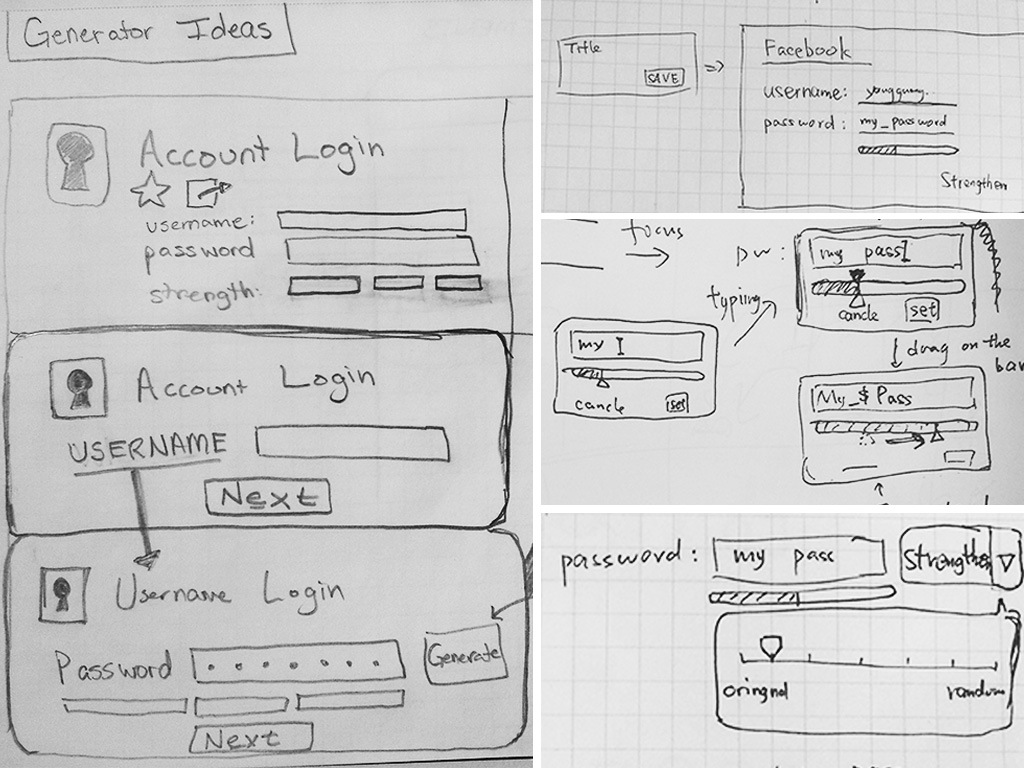 Generator Ideas
Account Login
username:
password
strength:
Account Login
USERNAME
Next
Username Login
Password
Generate
Next
Title
SAVE
Facebook
username: yongguang.
password: my_password
Strengthen
focus
pw: my pass
cancle set
typing
my
cancle set
drag on the
bar
My_$ Pass
password: my pass Strengthen
oringnal random